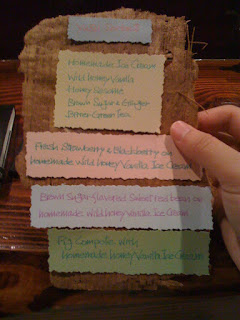 Homemade Ice Cream
Wild honey-Vanilla
Honey Sesame
Brown Sugar & Ginger
Green Tea
Fresh Strawberry & Blackberry on
homemade Wild honey Vanilla Ice Cream
Brown Sugar-flavored Sweet red beans on
homemade Wild honey Vanilla Ice Cream
Fig Compote with
homemade honey Vanilla Ice Cream